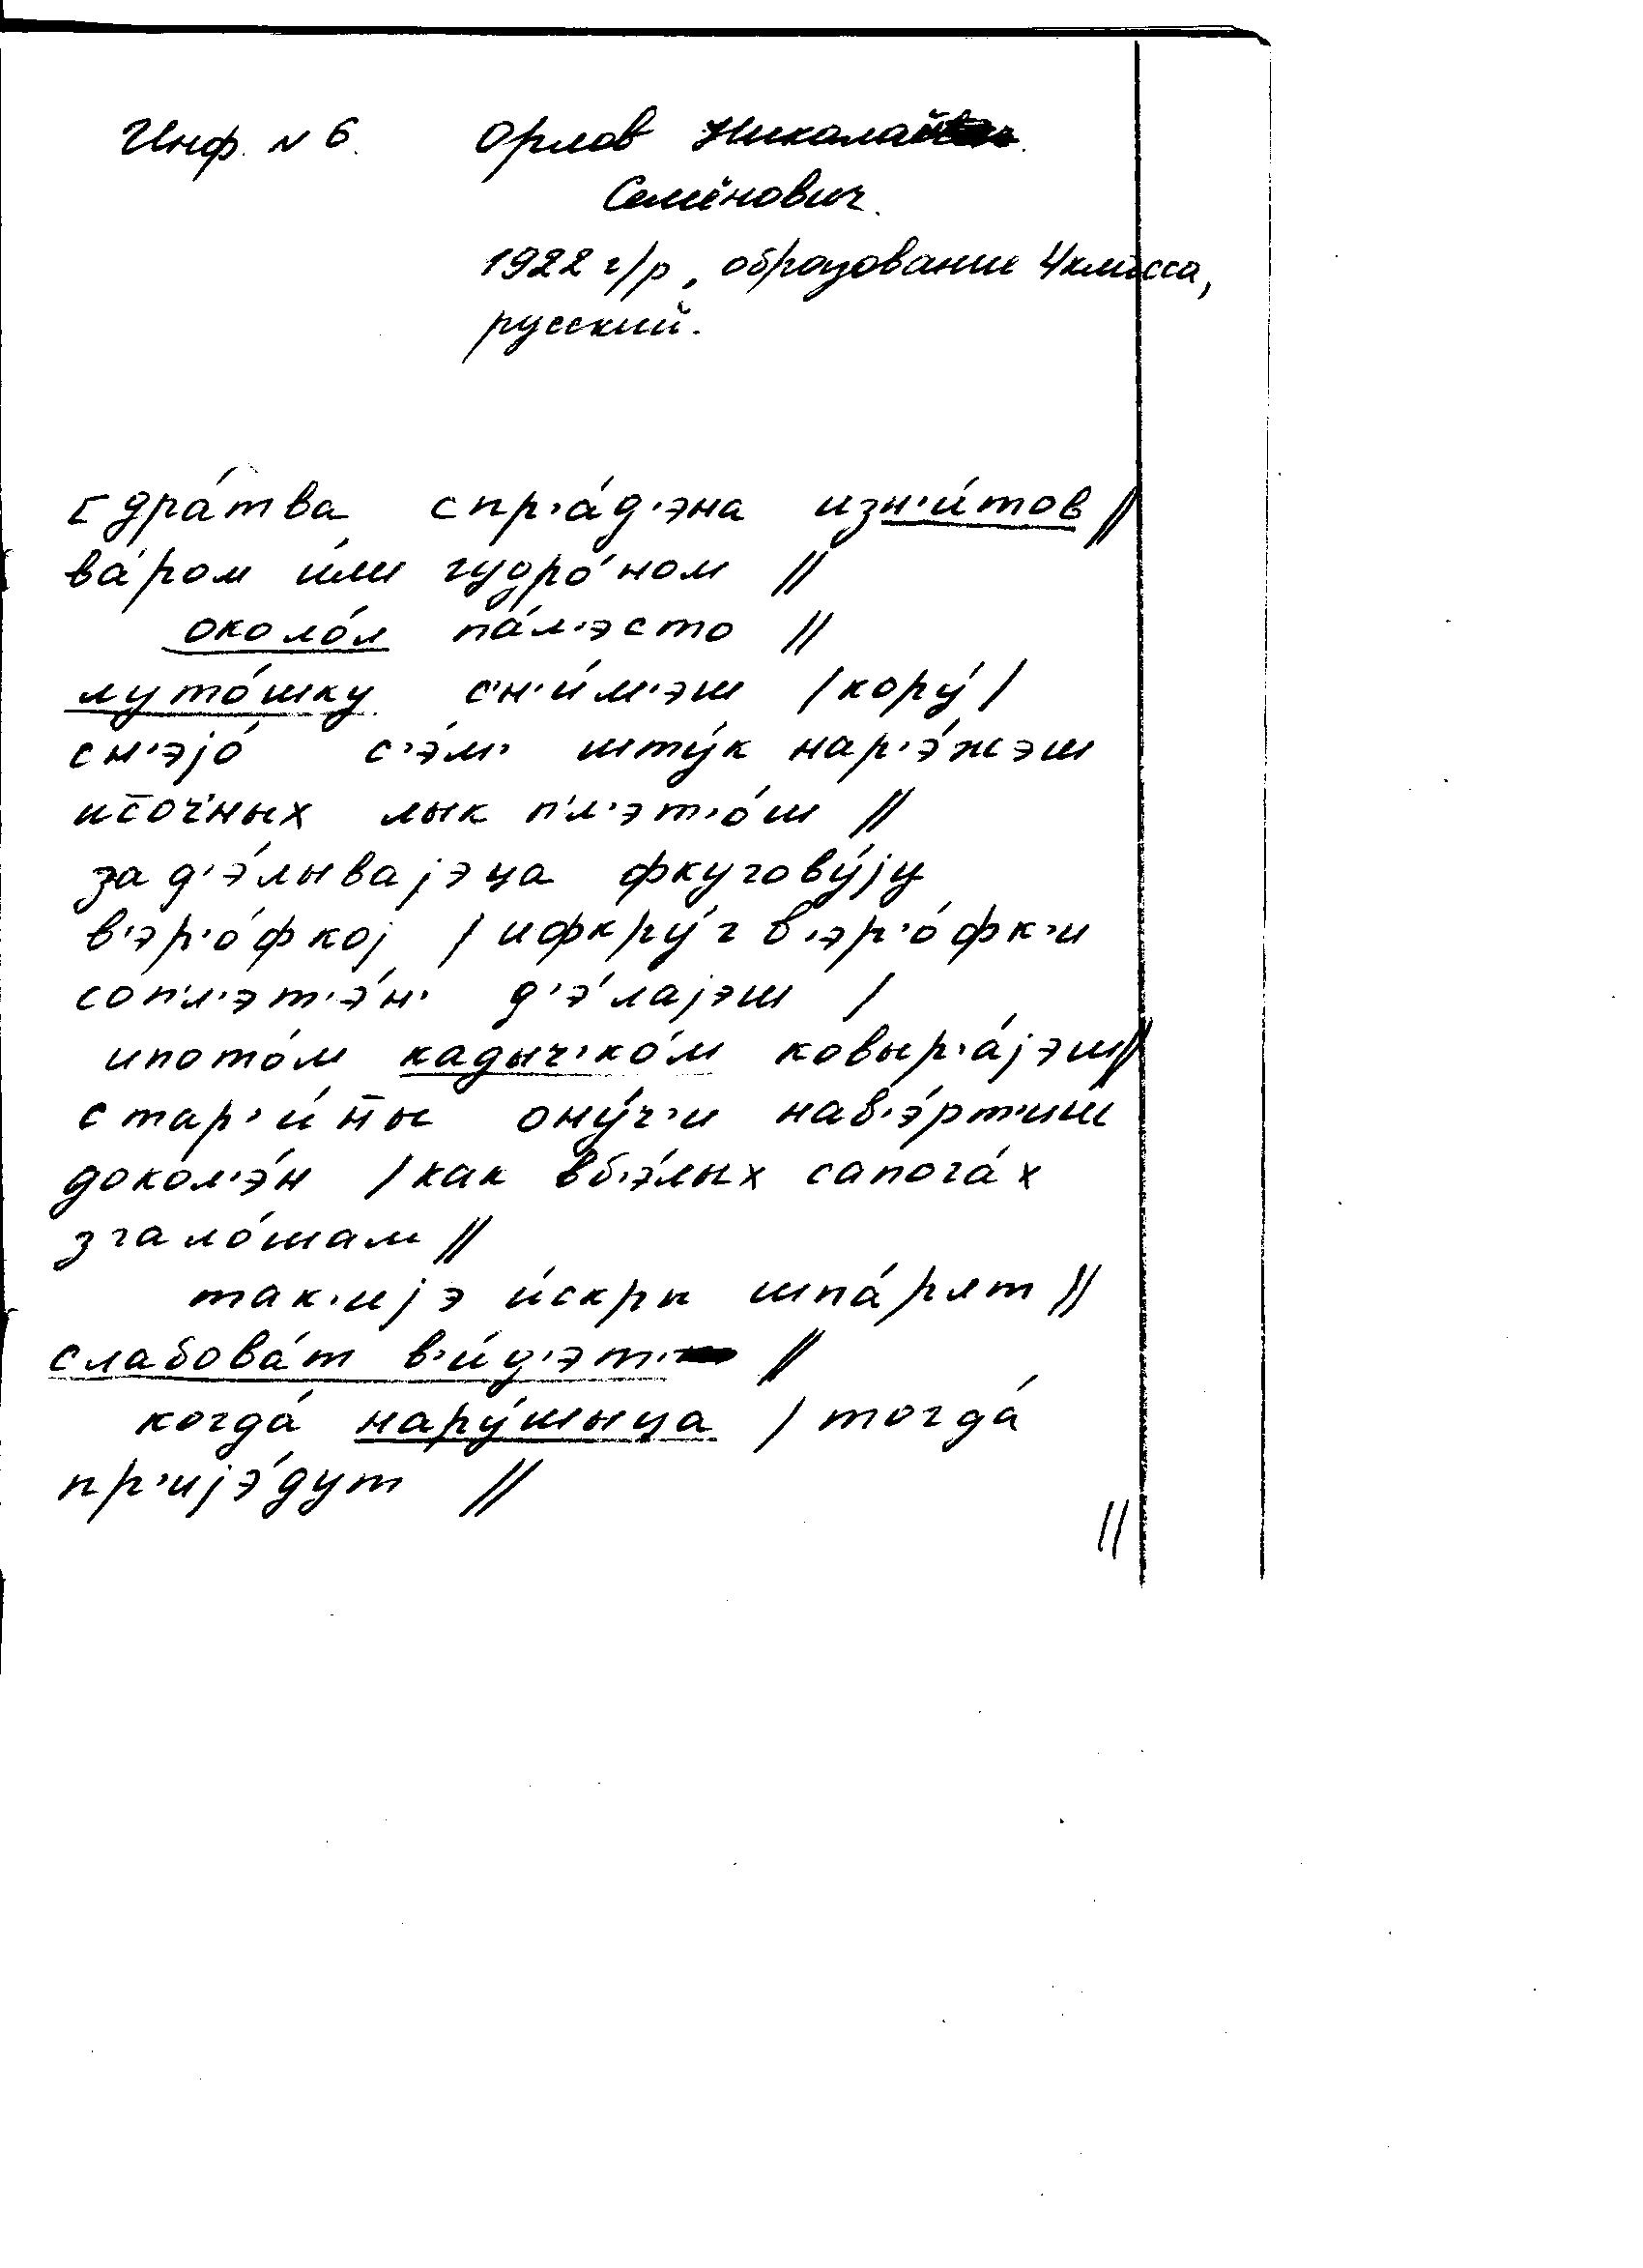 Инф. № 6. Орлов Николай
Семёнович.
1922 г/р, образование 4 класса,
русский.
[дра́тва спр'а́д'эна изн'и́тов //
ва́ром и́ли гудро́ном //
около́л па́л'эсто //
луто́шку с'н'и́м'эш /кору́/
сн'эjо́ с'э́м' шту́к нар'э́жэш
ис̄о́чных лык п'л'эт'о́ш //
зад'э́лываjэца фкугову́jу
в'эр'о́фкоj / ифкру́г в'эр'о́фк'и
соп'л'эт'э́н' д'э́лаjэш /
ипото́м кадыч'ко́м ковыр'а́jэш //
стар'и́н̄ы ону́ч'и нав'э́рт'иш
докол'э́н / как вб'э́лых сапога́х
згало́шам //
так'иjэ и́скры шпа́рят //
слабова́т в'и́д'эт' //
когда́ нару́шыца / тогда́
пр'иjэ́дут //
//